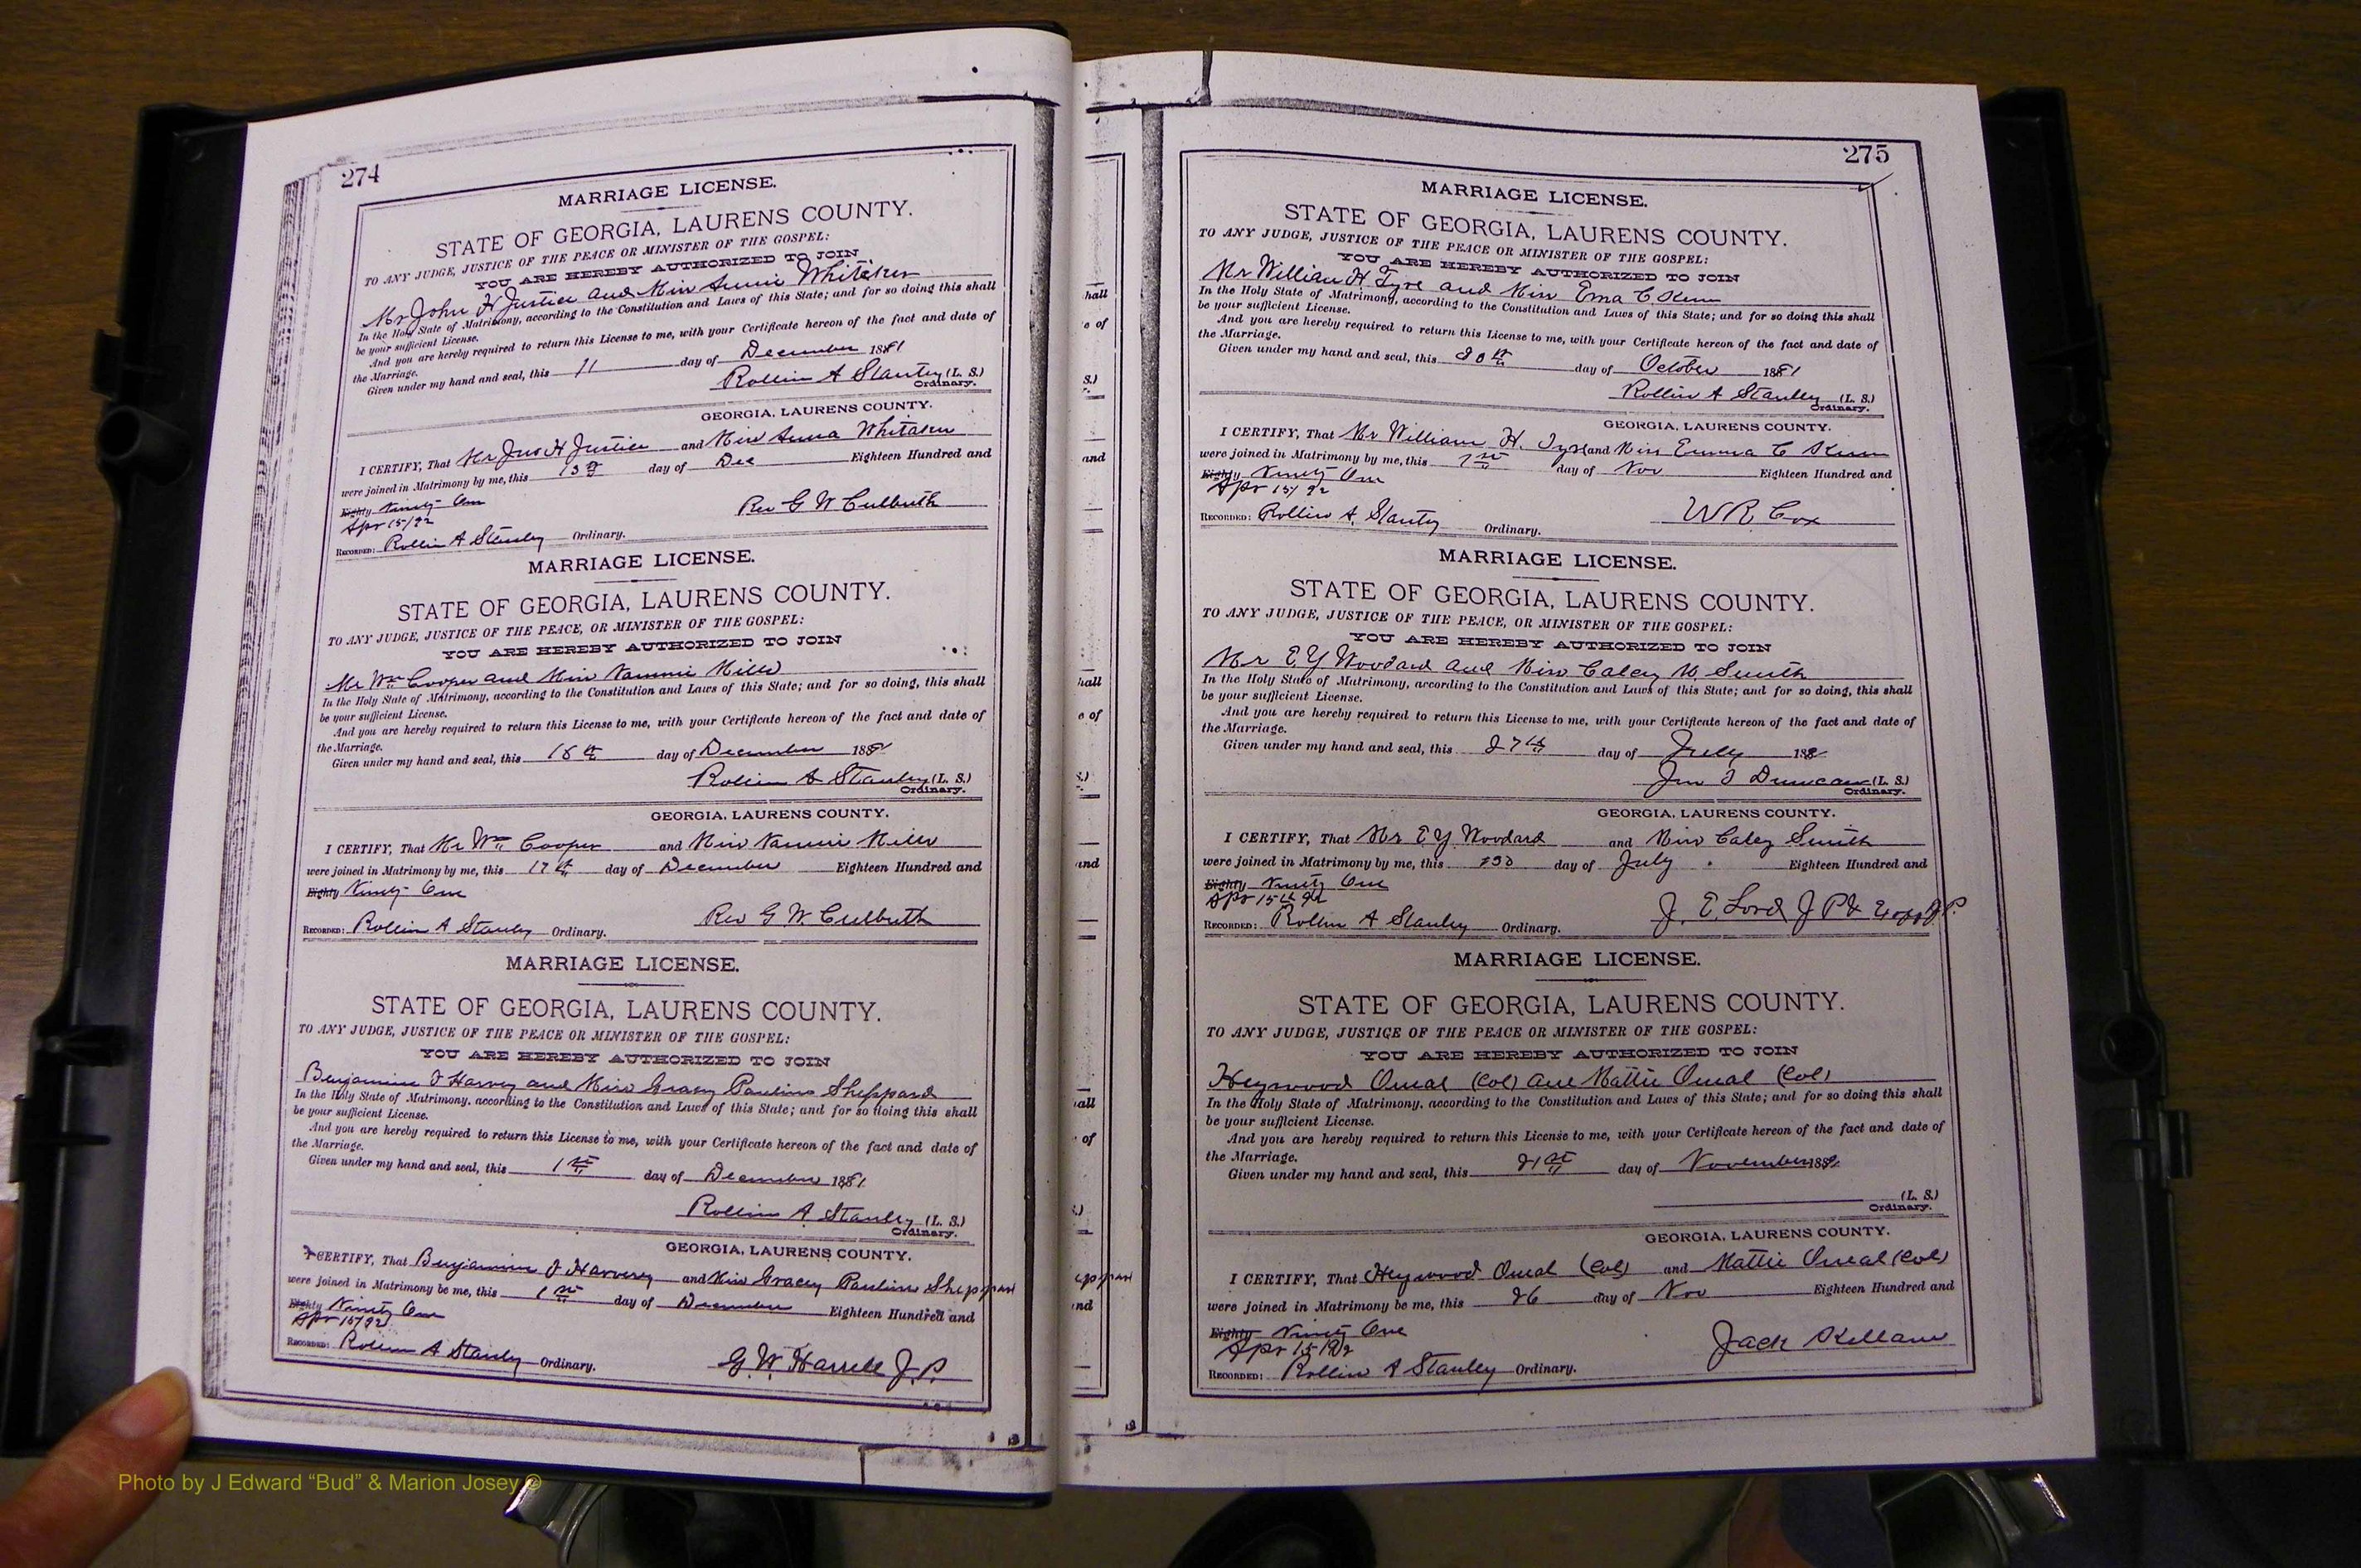 274
MARRIAGE LICENSE.
STATE OF GEORGIA, LAURENS COUNTY.
TO ANY JUDGE, JUSTICE OF THE PEACE OR MINISTER OF THE GOSPEL:
YOU ARE HEREBY AUTHORIZED TO JOIN
Mr John H Justice and Miss Annie Whitaker
In the Holy State of Matrimony, according to the Constitution and Laws of this State; and for so doing this shall
be your sufficient License.
And you are hereby required to return this License to me, with your Certificate hereon of the fact and date of
the Marriage.
Given under my hand and seal, this 11 day of December 1891
Rollin A Stanley (L. S.)
Ordinary.
GEORGIA, LAURENS COUNTY.
I CERTIFY, That Mr Jno H Justice and Miss Anna Whitaker
were joined in Matrimony by me, this 13 day of Dec Eighteen Hundred and
Eighty Ninety One
Apr 15/92
Rev G W Culbuth
RECORDED: Rollin A Stanley Ordinary.
MARRIAGE LICENSE.
STATE OF GEORGIA, LAURENS COUNTY.
TO ANY JUDGE, JUSTICE OF THE PEACE, OR MINISTER OF THE GOSPEL:
YOU ARE HEREBY AUTHORIZED TO JOIN
Mr Wm Cooper and Miss Nannie Mills
In the Holy State of Matrimony, according to the Constitution and Laws of this State; and for so doing, this shall
be your sufficient License.
And you are hereby required to return this License to me, with your Certificate hereon of the fact and date of
the Marriage.
Given under my hand and seal, this 16th day of December 189
Rollin A Stanley (L. S.)
Ordinary.
GEORGIA, LAURENS COUNTY.
I CERTIFY, That Mr Wm Cooper and Miss Nannie Mills
were joined in Matrimony by me, this 17th day of December Eighteen Hundred and
Eighty Ninety One
Rev G W. Culbuth
RECORDED: Rollin A Stanley Ordinary.
MARRIAGE LICENSE.
STATE OF GEORGIA, LAURENS COUNTY.
TO ANY JUDGE, JUSTICE OF THE PEACE OR MINISTER OF THE GOSPEL:
YOU ARE HEREBY AUTHORIZED TO JOIN
Benjamin J Harvey and Miss Gracy Pauline Sheppard
In the Holy State of Matrimony, according to the Constitution and Laws of this State; and for so doing this shall
be your sufficient License.
And you are hereby required to return this License to me, with your Certificate hereon of the fact and date of
the Marriage.
Given under my hand and seal, this 1st day of December 1891
Rollin A Stanley (L. S.)
Ordinary.
GEORGIA, LAURENS COUNTY.
I CERTIFY, That Benjamin J Harvey and Miss Gracey Pauline Sheppard
were joined in Matrimony be me, this 1st day of December Eighteen Hundred and
Eighty Ninety One
Apr 15/92
RECORDED: Rollin A Stanley Ordinary.
G. W. Harrell J. P.
275
MARRIAGE LICENSE.
STATE OF GEORGIA, LAURENS COUNTY.
TO ANY JUDGE, JUSTICE OF THE PEACE OR MINISTER OF THE GOSPEL:
YOU ARE HEREBY AUTHORIZED TO JOIN
Mr William H Tyre and Miss Ema C.
In the Holy State of Matrimony, according to the Constitution and Laws of this State; and for so doing this shall
be your sufficient License.
And you are hereby required to return this License to me, with your Certificate hereon of the fact and date of
the Marriage.
Given under my hand and seal, this 30th day of October 1891
Rollin A Stanley (L. S.)
Ordinary.
GEORGIA, LAURENS COUNTY.
I CERTIFY, That Mr William H. Tyre and Miss Emma C
were joined in Matrimony by me, this 1st day of Nov Eighteen Hundred and
Eighty Ninety One
Apr 15/92
RECORDED: Rollin A. Stanley Ordinary.
W R Cox
MARRIAGE LICENSE.
STATE OF GEORGIA, LAURENS COUNTY.
TO ANY JUDGE, JUSTICE OF THE PEACE, OR MINISTER OF THE GOSPEL:
YOU ARE HEREBY AUTHORIZED TO JOIN
Mr E. Y Woodard and Miss Caley M. Smith
In the Holy State of Matrimony, according to the Constitution and Laws of this State; and for so doing, this shall
be your sufficient License.
And you are hereby required to return this License to me, with your Certificate hereon of the fact and date of
the Marriage.
Given under my hand and seal, this 27th day of July 188
Jno T Duncan (L. S.)
Ordinary.
GEORGIA, LAURENS COUNTY.
I CERTIFY, That Mr E Y Woodard and Miss Caley Smith
were joined in Matrimony by me, this day of July Eighteen Hundred and
Eighty Ninety One
Apr 15th 92
RECORDED: Rollin A Stanley Ordinary.
J. E. Lord J P & Exoff J. P.
MARRIAGE LICENSE.
STATE OF GEORGIA, LAURENS COUNTY.
TO ANY JUDGE, JUSTICE OF THE PEACE OR MINISTER OF THE GOSPEL:
YOU ARE HEREBY AUTHORIZED TO JOIN
Heywood Oneal (Col) and Mattie Oneal (Col)
In the Holy State of Matrimony, according to the Constitution and Laws of this State; and for so doing this shall
be your sufficient License.
And you are hereby required to return this License to me, with your Certificate hereon of the fact and date of
the Marriage.
Given under my hand and seal, this 21st day of November 189
(L. S.)
Ordinary.
GEORGIA, LAURENS COUNTY.
I CERTIFY, That Heywood Oneal (Col) and Mattie Oneal (Col)
were joined in Matrimony be me, this 26 day of Nov Eighteen Hundred and
Eighty Ninety One
Apr 15 1892
Jack Kellam
RECORDED: Rollin A Stanley Ordinary.
Photo by J Edward “Bud” & Marion Josey ©